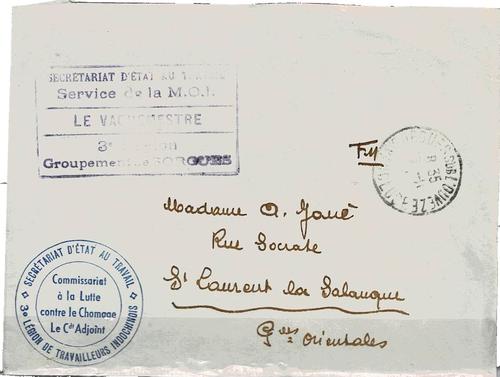 SECRÉTARIAT D'ÉTAT AU TRAVAIL
Service de la M.O.I.
LE VAGUEMESTRE
3e Légion
Groupement de SORGUES
F.M
SUR L'OUVEZE
8 35
Madame A. Jouë
Rue Socrate
St Laurent la Salanque
Pnées Orientales
SECRÉTARIAT D'ÉTAT AU TRAVAIL
3e LÉGION DE TRAVAILLEURS INDOCHINOIS
Commissariat
à la Lutte
contre le Chomage
Le Cdt Adjoint